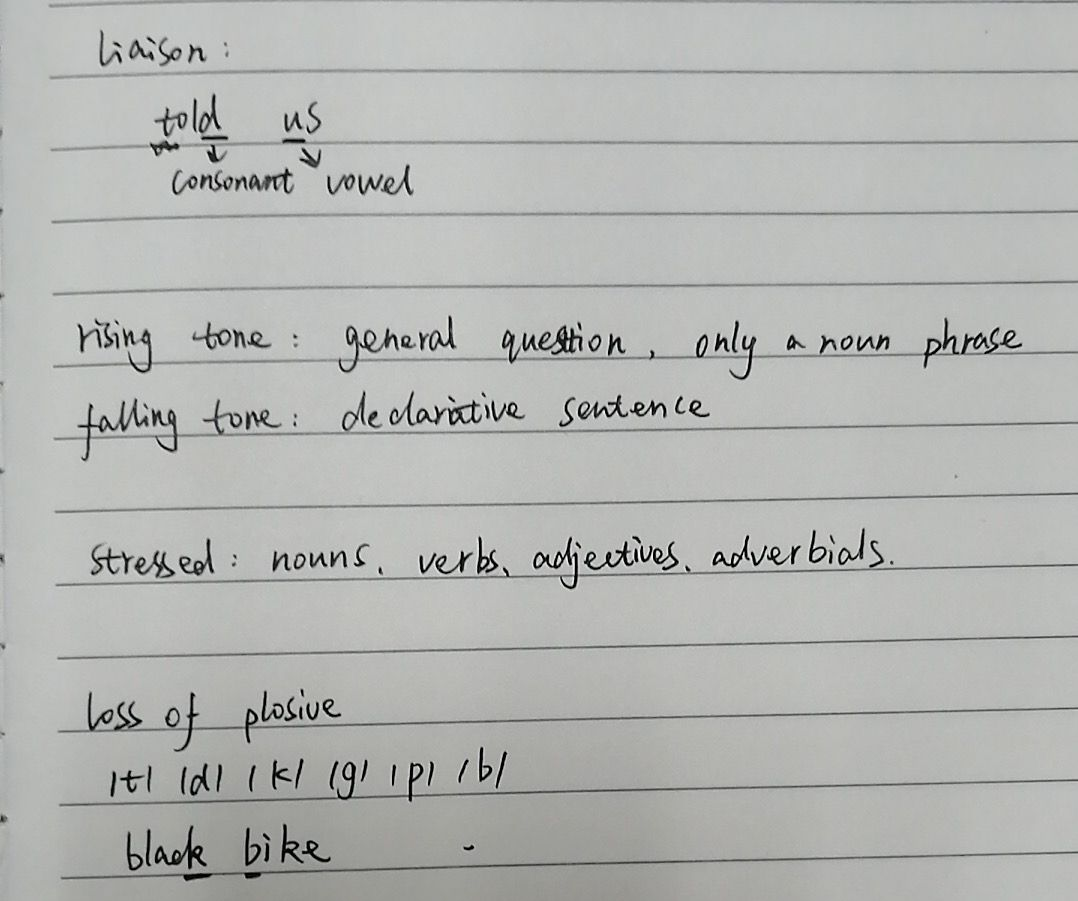 liaison :
told us
consonant vowel
rising tone : general question , only a noun phrase
falling tone : declarative sentence
stressed : nouns、verbs、adjectives、adverbials.
loss of plosive
/t/ /d/ /k/ /g/ /p/ /b/
black bike